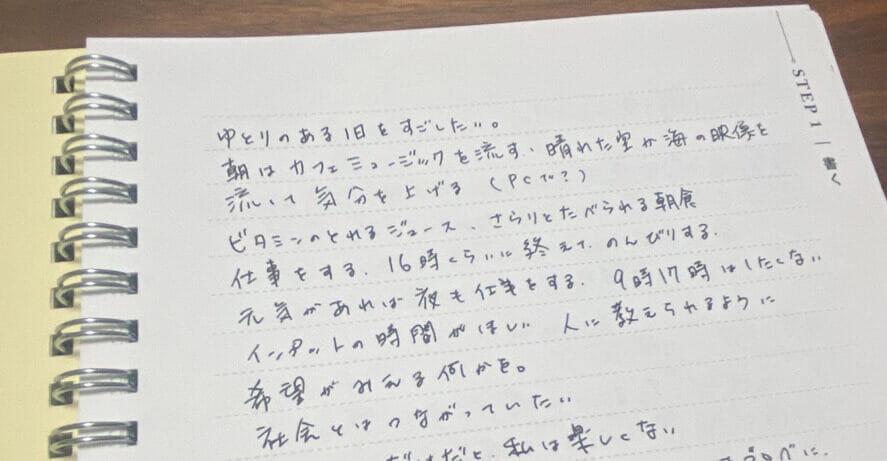 STEP 1 | 書く
ゆとりのある1日をすごしたい。
朝はカフェミュージックを流す、晴れた空か海の映像を
流して気分を上げる（PCで？）
ビタミンのとれるジュース、さらりとたべられる朝食
仕事をする、16時くらいに終えて、のんびりする。
元気があれば夜も仕事をする。9時17時はしたくない
インプットの時間がほしい 人に教えられるように
希望がみえる何かを。
社会とはつながっていたい
だけだと、私は楽しくない